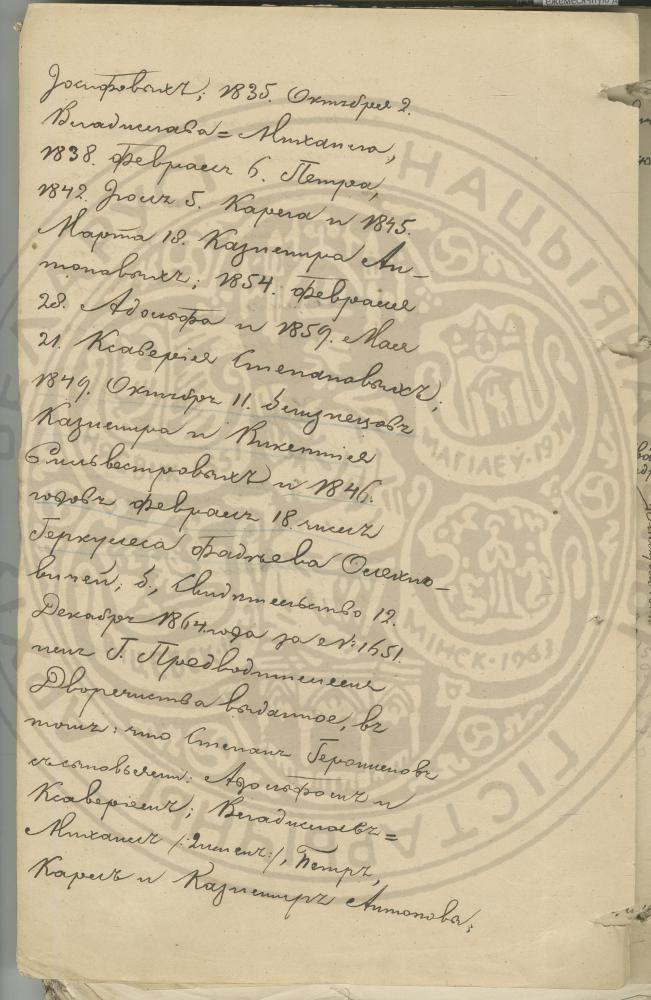 Іосифовыхъ; 1835. Октября 2.
Владислава=Михаила,
1838. Февраля 6. Петра,
1842. Іюля 5. Карла и 1845.
Марта 18. Казимира Ан-
тоновыхъ; 1854. Февраля
28. Адольфа и 1859. Мая
21. Ксаверія Степановыхъ;
1849. Октября 11. близнецовъ
Казимира и Викентія
Сильвестровыхъ и 1846.
годовъ Февраля 18. чиселъ
Геркулеса Фадѣева Олехно-
вичей; 5., Свидѣтельство 12.
Декабря 1864 года за №: 1651.
Г. Предводителемъ
Дворянства выданное, въ
томъ: что Степанъ Геронимовъ
съ сыновьями: Адольфомъ и
Ксаверіемъ; Владиславъ=
Михаилъ /: 2 именъ:/, Петръ,
Карлъ и Казимиръ Антоновы;
НАЦЫЯНАЛ
ГІСТАРЫЧНЫ
МАГІЛЕЎ·19
МІНСК·1963